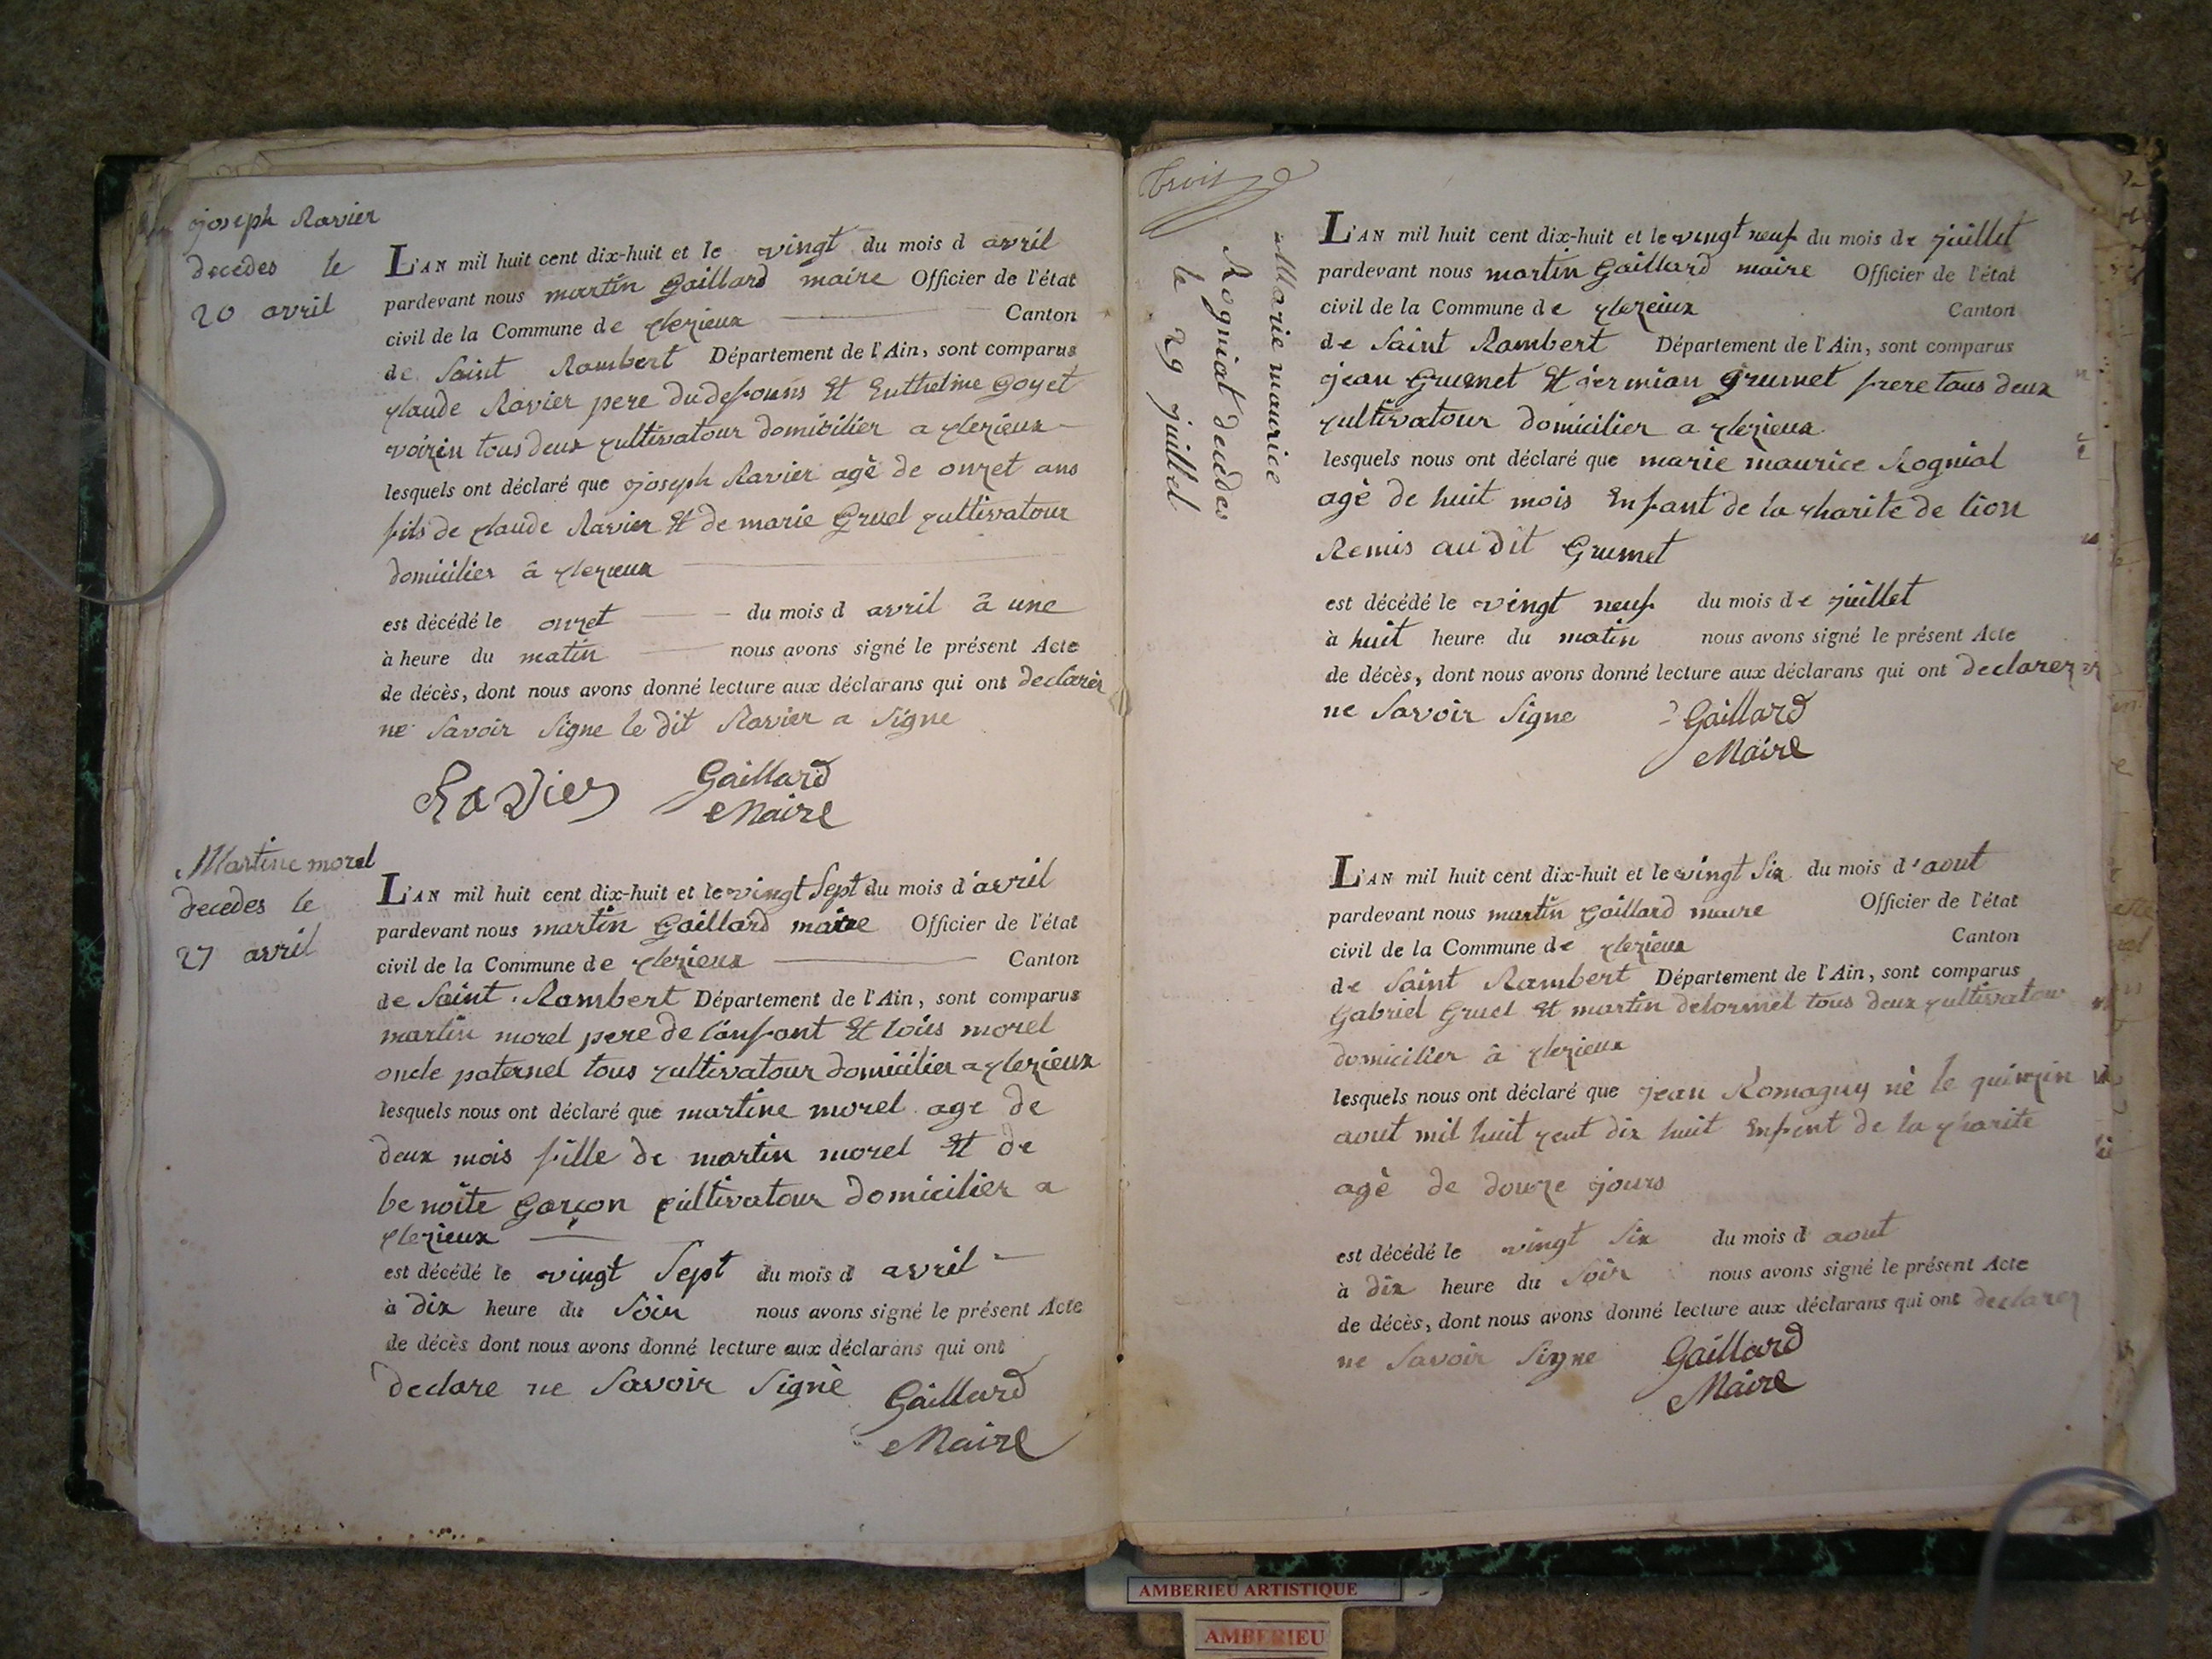 joseph Ravier
decedes le
20 avril
L'AN mil huit cent dix-huit et le vingt du mois d avril
pardevant nous martin Gaillard maire Officier de l'état
civil de la Commune de clezieux Canton
de Saint Rambert Département de l'Ain, sont comparus
claude Ravier pere du defouns Et Enthelme Goyet
voizin tous deux cultivatour domicilier a clezieux
lesquels ont déclaré que joseph Ravier agè de onzet ans
fils de claude Ravier Et de marie Gruel cultivatour
domicilier â clezieux
est décédé le onzet du mois d avril â une
à heure du matin nous avons signé le présent Acte
de décès, dont nous avons donné lecture aux déclarans qui ont declarèr
ne Savoir Signe le dit Ravier a Signe
Ravier Gaillard
Maire
Martine morel
decedes le
27 avril
L'AN mil huit cent dix-huit et le vingt Sept du mois d'avril
pardevant nous martin Gaillard maire Officier de l'état
civil de la Commune de clezieux Canton
de Saint Rambert Département de l'Ain, sont comparus
martin morel pere de l'anfant Et loüis morel
oncle paternel tous cultivatour domicilier a clezieux
lesquels nous ont déclaré que martine morel age de
deux mois fille de martin morel Et de
benoite Garçon cultivatour domicilier a
clezieux
est décédé le vingt Sept du mois d avril
à dix heure du Soir nous avons signé le présent Acte
de décès dont nous avons donné lecture aux déclarans qui ont
declare ne Savoir Signè Gaillard
Maire
trois
Marie maurice
Rogniat decedes
le 29 juillet
L'AN mil huit cent dix-huit et le vingt neuf du mois de juillet
pardevant nous martin Gaillard maire Officier de l'état
civil de la Commune de clezeiux Canton
de Saint Rambert Département de l'Ain, sont comparus
jean Grumet Et jermian Grumet frere tous deux
cultivatour domicilier a clezieux
lesquels nous ont déclaré que marie maurice Rogniat
agè de huit mois Enfant de la charite de lion
Remis au dit Grumet
est décédé le vingt neuf du mois de juillet
à huit heure du matin nous avons signé le présent Acte
de décès, dont nous avons donné lecture aux déclarans qui ont declarez
ne Savoir Signe Gaillard
Maire
L'AN mil huit cent dix-huit et le vingt Six du mois d'aout
pardevant nous martin Gaillard maire Officier de l'état
civil de la Commune de clezieux Canton
de Saint Rambert Département de l'Ain, sont comparus
Gabriel Gruel Et martin delormel tous deux cultivatour
domicilier â clezieux
lesquels nous ont déclaré que jean Romaguy nè le quinzin
aout mil huit cent dix huit Enfent de la charite
agè de douze jours
est décédé le vingt Six du mois d aout
à dix heure du Soir nous avons signé le présent Acte
de décès, dont nous avons donné lecture aux déclarans qui ont declarez
ne Savoir Signe Gaillard
Maire
AMBERIEU ARTISTIQUE
AMBERIEU